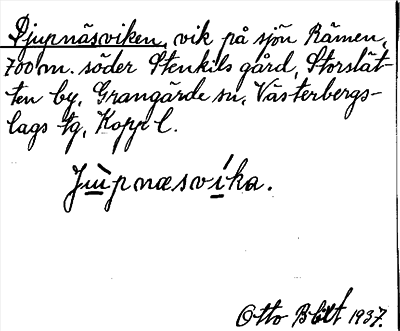 Djupnäsviken, vik på sjön Rämen,
700 m. söder Stenkils gård, Storslät-
ten by, Grangärde sn, Västerbergs-
lags tg, Kopp l.
Jùpnæsvíka.
Otto Blixt 1937.